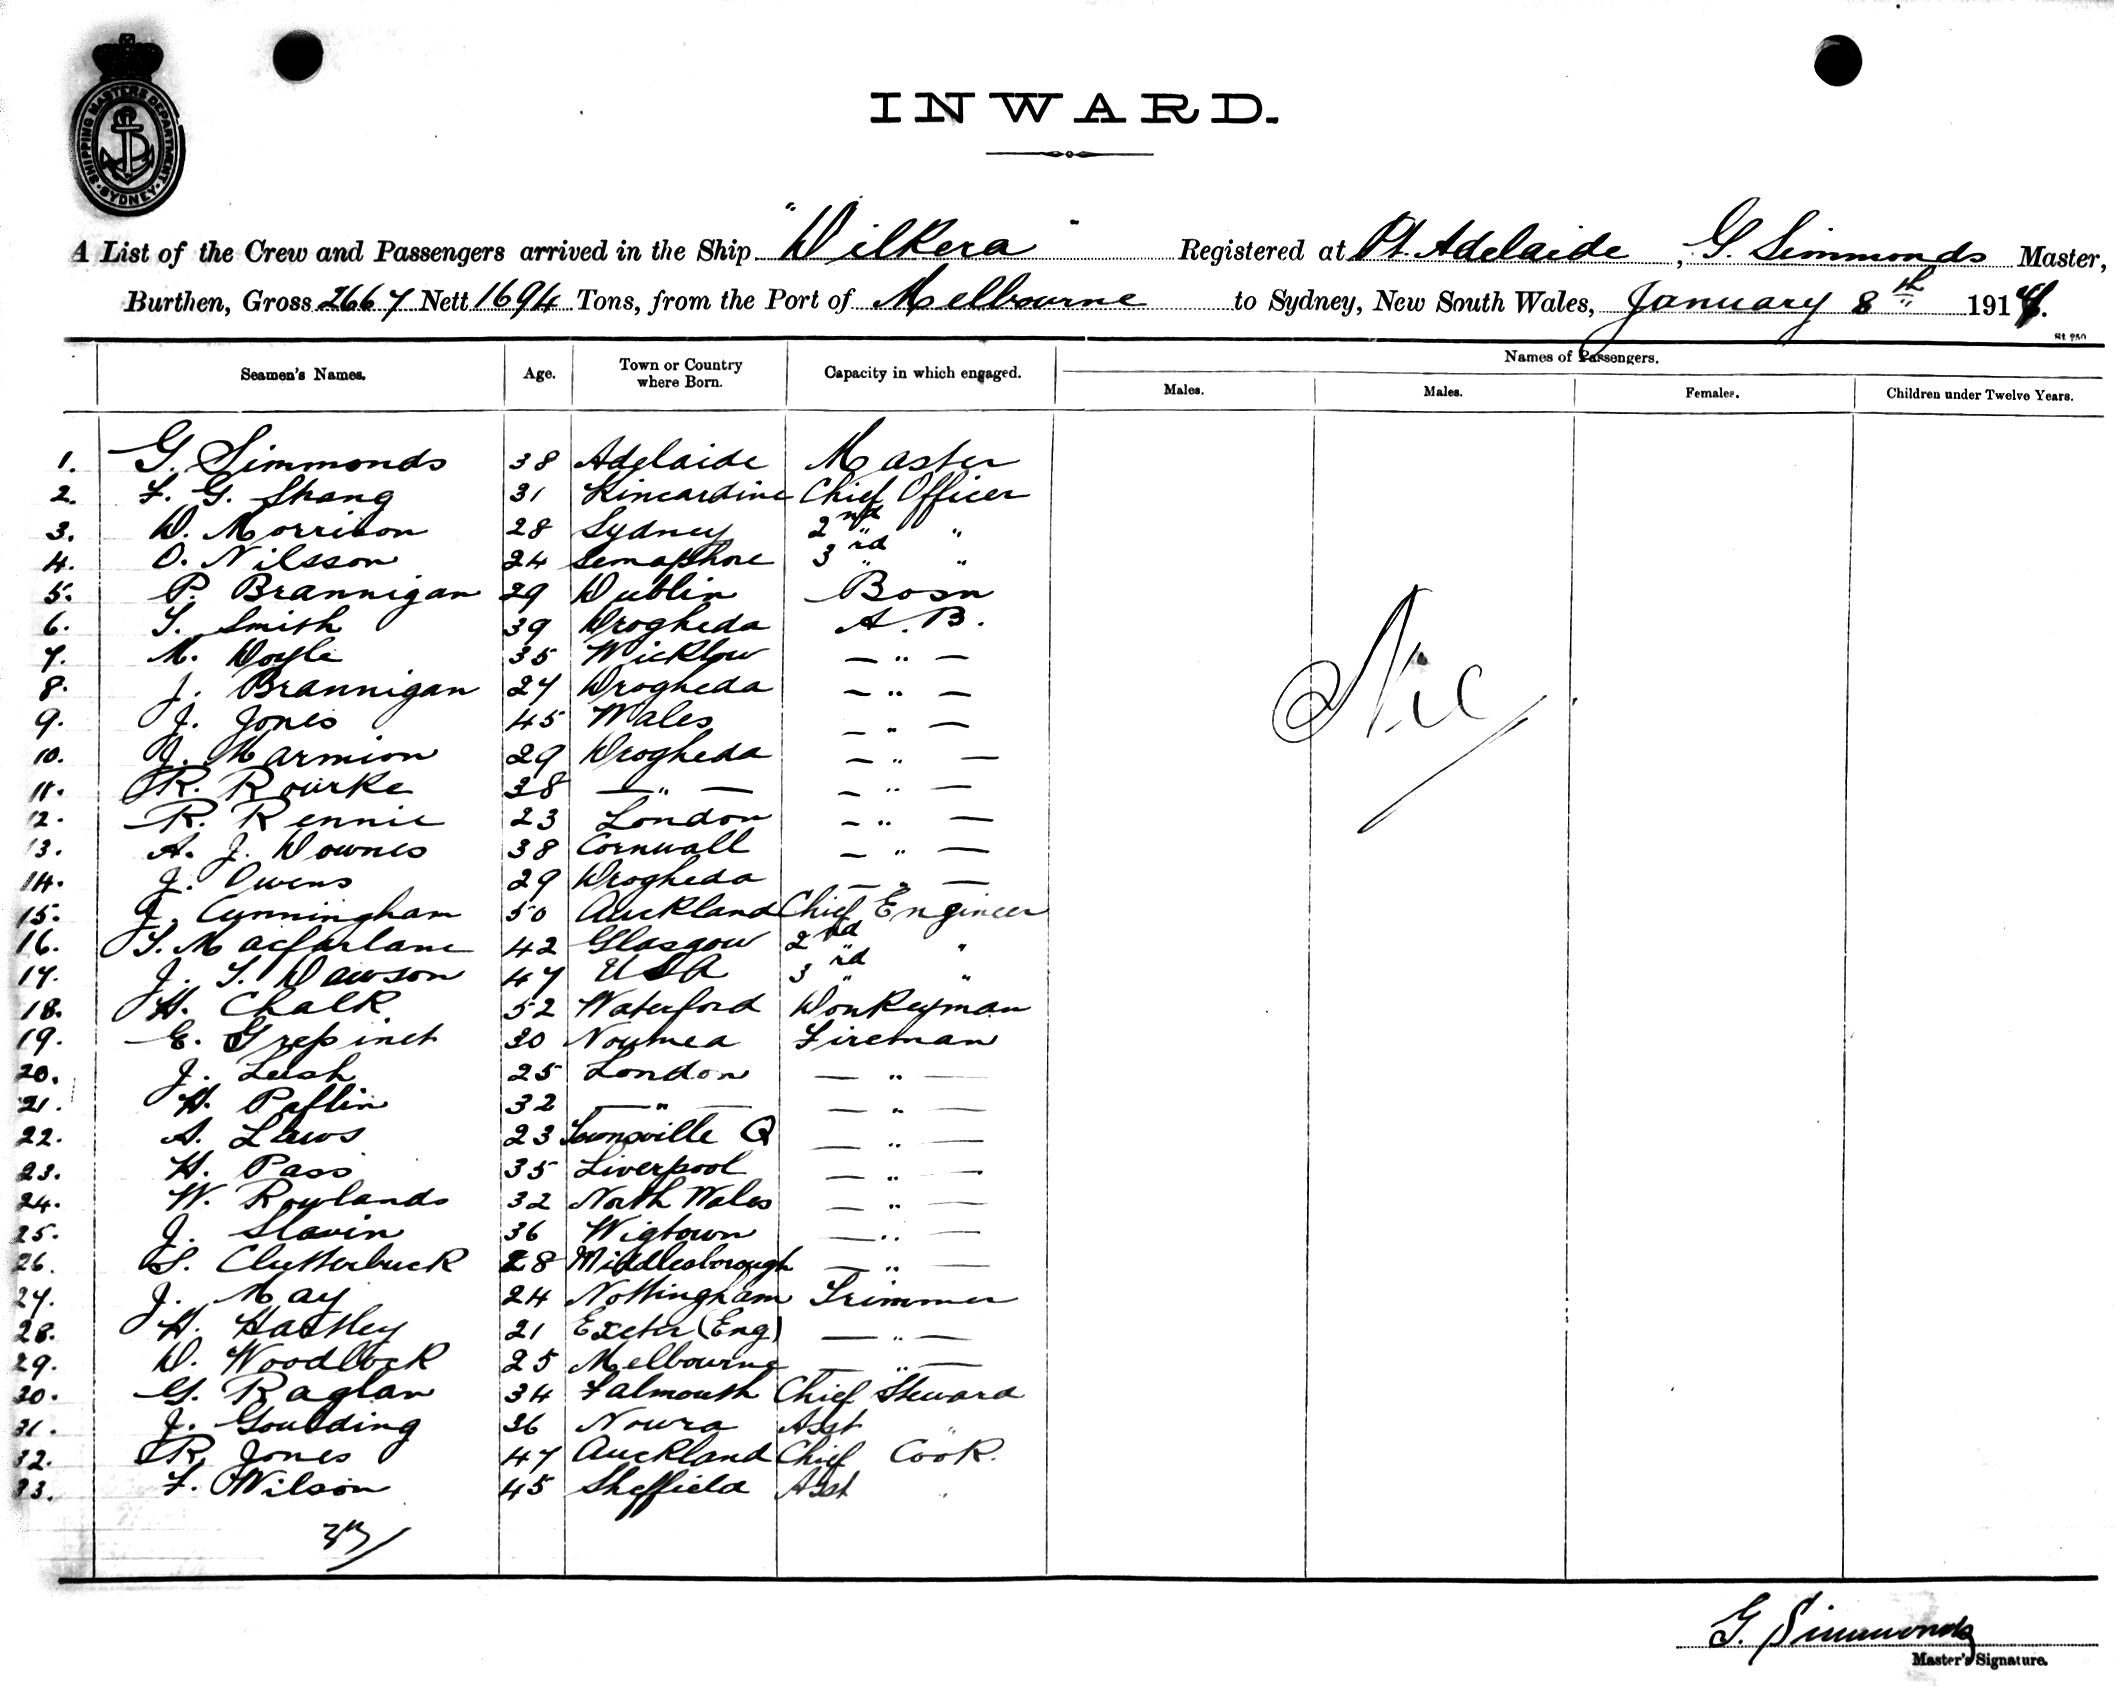 SHIPPING MASTERS DEPARTMENT · SYDNEY ·
INWARD.
A List of the Crew and Passengers arrived in the Ship "Wilkera" Registered at Pt. Adelaide, G. Simmonds Master,
Burthen, Gross 2667 Nett 1694 Tons, from the Port of Melbourne to Sydney, New South Wales, January 8th 1914.
St. 250
Seamen's Names. Age. Town or Country where Born. Capacity in which engaged. Names of Passengers.
Males. Males. Females. Children under Twelve Years.
1. G. Simmonds 38 Adelaide Master
2. F. G. Shang 31 Kincardine Chief Officer
3. D. Morrison 28 Sydney 2nd "
4. O. Nilsson 24 Semaphore 3rd "
5. P. Brannigan 29 Dublin Bosn
6. T. Smith 39 Drogheda A.B.
7. M. Doyle 35 Wicklow — " —
8. J. Brannigan 27 Drogheda — " —
9. J. Jones 45 Wales — " —
10. J. Marmion 29 Drogheda — " —
11. R. Rourke 38 — " — — " —
12. R. Rennie 23 London — " —
13. A. J. Downes 38 Cornwall — " —
14. J. Owens 29 Drogheda — " —
15. J. Cunningham 50 Auckland Chief Engineer
16. T. Macfarlane 42 Glasgow 2nd "
17. J. T. Dawson 47 USA 3rd "
18. H. Chalk 52 Waterford Donkeyman
19. E. Grepinet 30 Noumea Fireman
20. J. Lush 25 London — " —
21. H. Paflin 32 — " — — " —
22. A. Laws 23 Townsville Q — " —
23. H. Pass 35 Liverpool — " —
24. W. Rowlands 32 North Wales — " —
25. J. Slavin 36 Wigtown — " —
26. S. Clutterbuck 28 Middlesborough — " —
27. J. May 24 Nottingham Trimmer
28. H. Hartley 21 Exeter (Eng) — " —
29. D. Woodlock 25 Melbourne — " —
30. G. Raglan 34 Falmouth Chief Steward
31. J. Goulding 36 Nowra Asst "
32. R. Jones 47 Auckland Chief Cook.
33. F. Wilson 45 Sheffield Asst "
Nil
33/
G. Simmonds
Master's Signature.